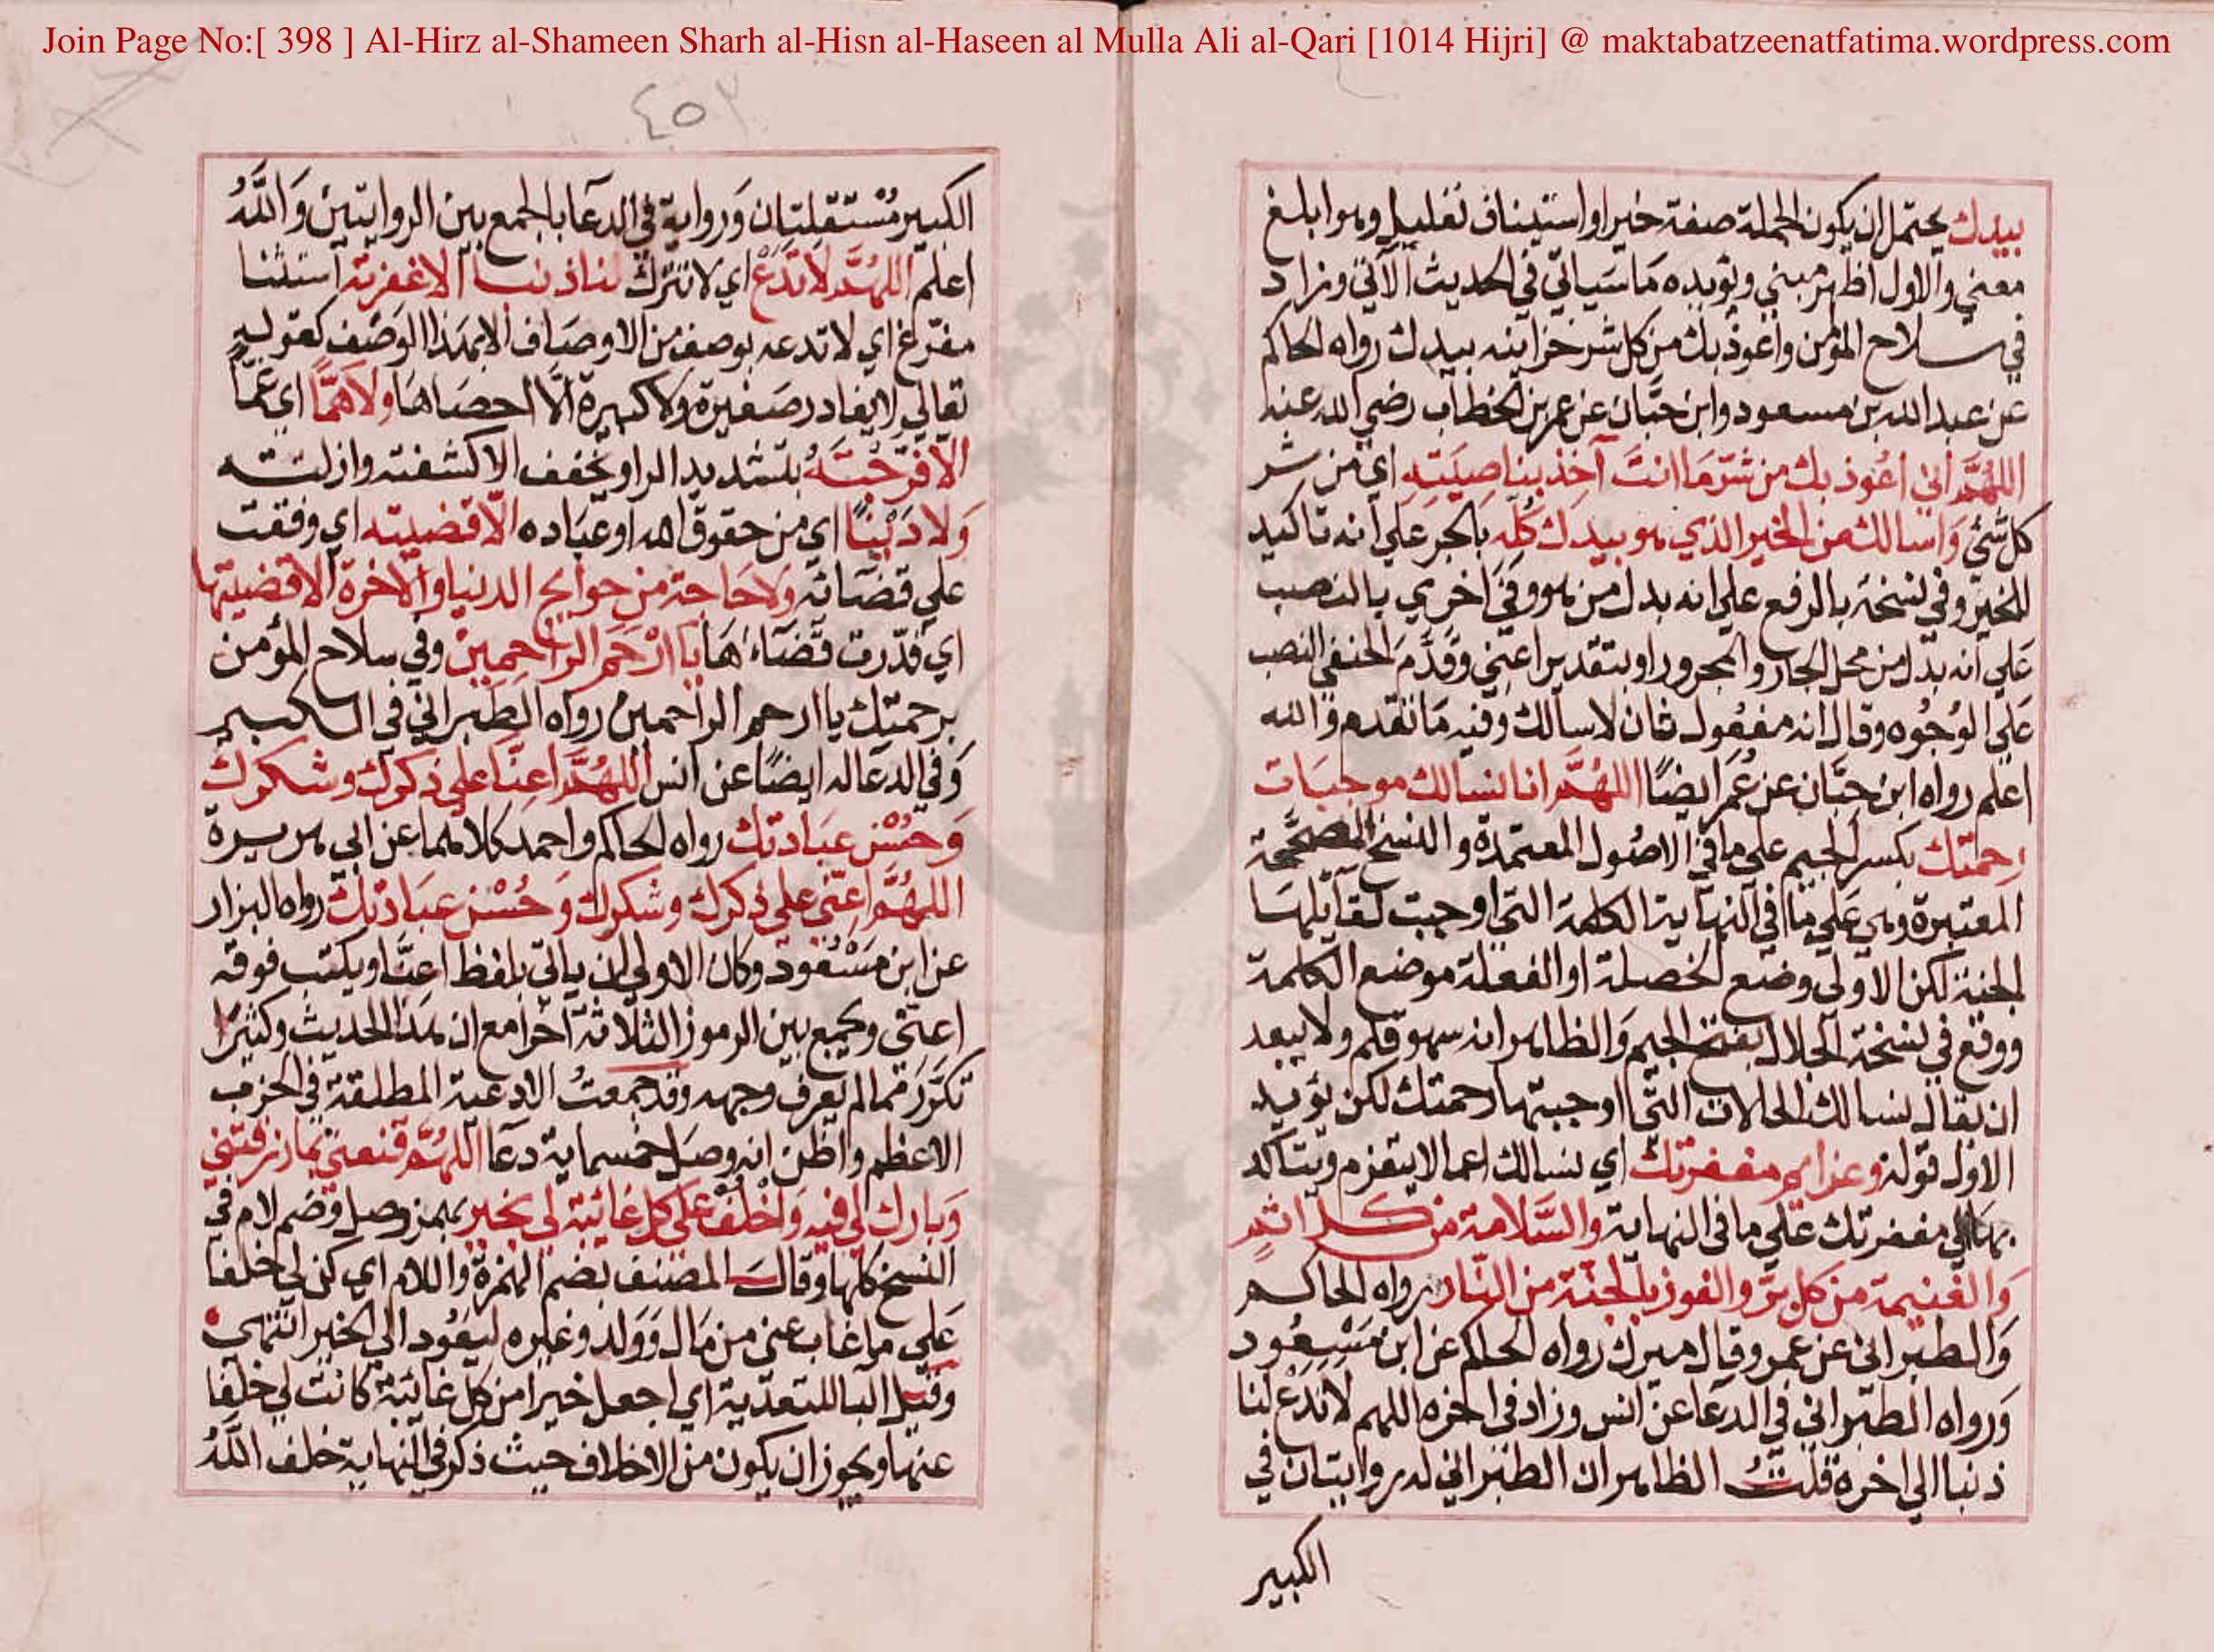 Join Page No:[ 398 ] Al-Hirz al-Shameen Sharh al-Hisn al-Haseen al Mulla Ali al-Qari [1014 Hijri] @ maktabatzeenatfatima.wordpress.com
بيدك يحتمل ان يكون الجملة صفة خير او استيناف تعليل وهو ابلغ
معني والاول اظهر مبني ويؤيده مَا سَياتي في الحديث الآتي وزاد
في سلاح المؤمن واعوذ بك من كل شر خزاينه بيدك رواه الحاكم
عن عبد الله بن مسعود وابن حبَّان عن عمر بن الخطاب رضي الله عنه
اللهُمَّ اني اعُوذ بك من شرّ مَا انتَ آخذ بناصِيَتِهِ اي من شر
كل شَئ وَاسالك من الخير الذي هو بيدك كُلّه بالجر علي انه تاكيد
للخير وفي نسخة بالرفع علي انه بدل من هو وَفي اخري بالنصب
عَلي انه بدل من محل الجار والمجرور او بتقدير اعني وَقدَّم الحنفي النصب
عَلي الوُجُوه وقال انه مفعُول ثان لاسالك وفيه مَا تقدم وَالله
اعلم رواه ابن حبَّان عن عُمَر ايضًا اللهُمَّ انا نسالك موجبَات
رحمتك بكسر الجيم علي ما في الاصُول المعتمدة والنسخ المصحَّحة
المعتبرة وهي عَلي مَا في النهاية الكلمة التي اوجبت لقآيلهَا
الجنة لكن الاولي وضع الخصلة او الفعلة موضع الكلمة
ووقع في نسخة الجلال بفتح الجيم وَالظاهر انه سهو قلم ولا يبعد
ان يقال نسالك الحالات التي اوجبتها رحمتك لكن يؤيد
الاول قوله وعزايم مغفرتك اي نسالك اعمالا يتعزم ويتاكد
بهَا الي مغفرتك عَلي ما في النهاية والسَّلامة من كل اثم
وَالغنيمة من كل برّ والفوز بالجنّة من النَّار رواه الحاكم
وَالطبراني عن عمر وقال ميرك رواه الحاكم عن ابن مَسْعُود
وَرواه الطبراني في الدعَا عن انس وزاد في اخره اللهم لا تَدَعْ لنا
ذنبا الي اخره قلتُ الظاهر ان الطبراني له روايتان في
الكبير
٤٥٢
الكبير مُسْتقلتان وَرواية في الدعَآ بالجمع بين الروايتين وَاللهُ
اعلم اللهُمَّ لَا تدَعْ اي لا تترك لنا ذنبا الا غفرته استثنا
مفرّغ اي لا تدعه بوصف من الاوصَاف الا بهَذا الوَصْف كقوله
تعالي لا يغادر صَغيرة وَلا كبيرة الَّا احصَاهَا ولا هَمًّا اي غمًّا
الَّا فرّجْتَهُ بتشديد الرا ويخفف الا كشفته وازلته
وَلا دَيْنًا اي من حقوق الله او عبَاده الّا قضيته اي وفقت
علي قضَائه وَلا حَاجة من حوايج الدنيا والاخرة الا قضيتها
اي قدّرت قضَآءهَا يَا ارْحَم الرَّاحِمِيْن وفي سلاح المؤمن
برحمتك يا ارحم الراحمين رواه الطبراني في الكبير
وَفي الدعا له ايضًا عن انس اللهُمَّ اعنَّا علي ذكرك وشكرك
وَحُسْن عبَادتك رواه الحاكم واحمد كلاهما عن ابي هريرة
اللهُمَّ اعنّي علي ذكرك وشكرك وَحُسْن عبَادتك رواه البزار
عن ابن مَسْعُود وكان الاولي ان ياتي بلفظ اعنَّا ويكتب فوقه
اعنّي ويجمع بين الرموز الثلاثة اخرا مع ان هَذا الحديث وكثيرًا
تكرّرَ مما لم يعرف وجهه وقد جمعتُ الادعية المطلقة في الحزب
الاعظم واظن انه وصل خمسماية دعآ اللهُمَّ قنعني بما رزقتني
وَبارك لي فيه وَاخْلُفْ عَلي كل غائبة لي بخير بهمز وصل وضم لام في
النسخ كلها وقال المصنف بضم الهمزة واللام اي كن لي خلفا
عَلي ما غاب عني من مَال وَوَلد وغيره ليعُود الي الخير انتهي
وقيل البا للتعدية اي اجعل خيرا من كل غائبة كانت لي خلفا
عنها ويجوز ان يكون من الاخلاف حيث ذكر في النهاية خلف اللهُ